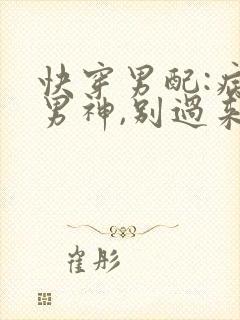 快穿男配:病
男神,别過来
崔彤